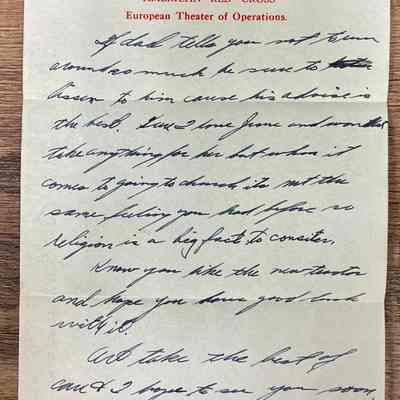 AMERICAN RED CROSS
European Theater of Operations.
If dad tells you not to run
around so much be sure to
lissen to him cause his advise is
the best. Sure I love June and wouldn't
take anything for her but when it
comes to going to church its not the
same feeling you had before so
religion is a big fact. to consiter.
Know you like the new tractor
and hope you have good luck
with it.
Art take the best of
care & I hope to see you soon.